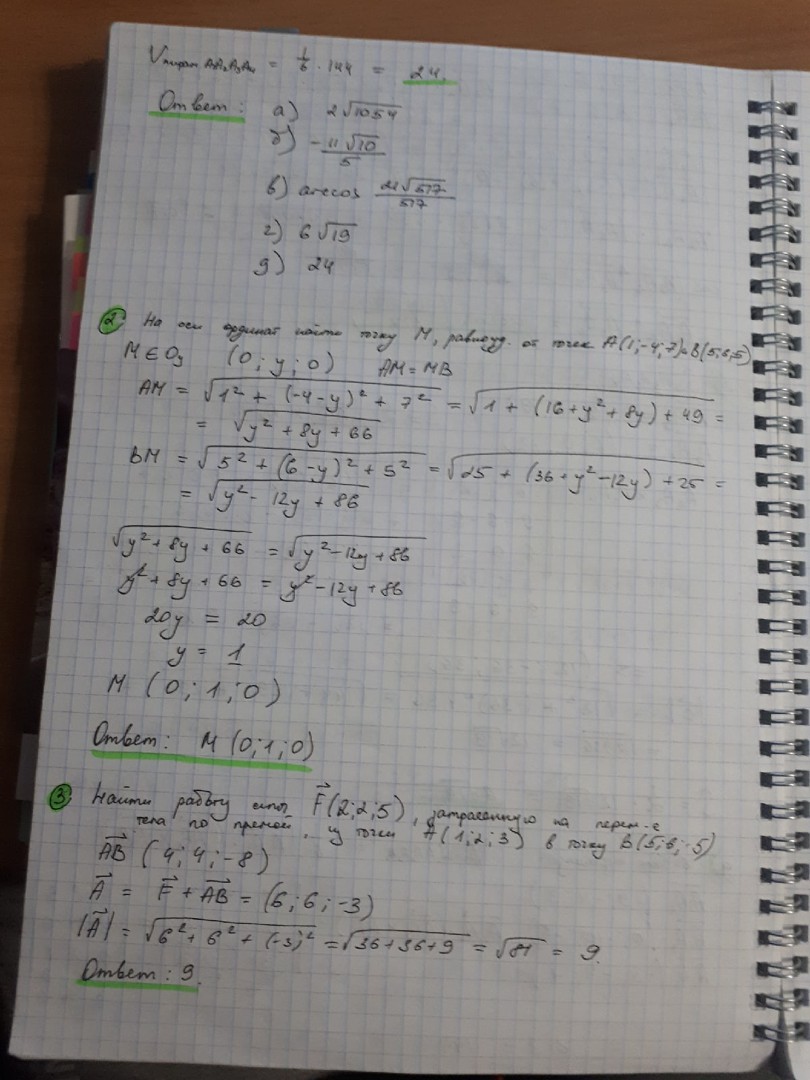 Vпирам A₁A₂A₃A₄ = 1/6 · 144 = 24.
Ответ: а) 2√1054
б) -11√10/5
в) arccos 21√517/517
г) 6√19
д) 24
2. На оси ординат найти точку M, равноуд. от точек A(1;-4;7) и B(5;6;5)
M ∈ Oy (0; y; 0) AM = MB
AM = √(1² + (-4-y)² + 7²) = √(1 + (16+y²+8y) + 49) =
= √(y² + 8y + 66)
BM = √(5² + (6-y)² + 5²) = √(25 + (36+y²-12y) + 25) =
= √(y² - 12y + 86)
√(y² + 8y + 66) = √(y² - 12y + 86)
y² + 8y + 66 = y² - 12y + 86
20y = 20
y = 1
M (0; 1; 0)
Ответ: M (0;1;0)
3. Найти работу силы F⃗(2;2;5), затраченную на перем-е
тела по прямой, из точки A(1;2;3) в точку B(5;6;-5)
AB⃗ (4; 4; -8)
A⃗ = F⃗ + AB⃗ = (6; 6; -3)
|A⃗| = √(6² + 6² + (-3)²) = √(36+36+9) = √81 = 9.
Ответ: 9.